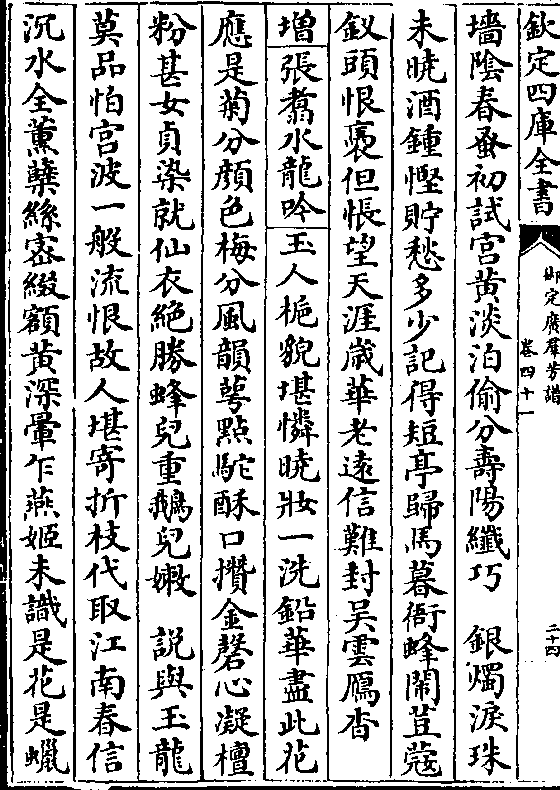 欽定四庫全書
御定廣羣芳譜
卷四十一
二十四
墻陰春蚤初試宮黄淡泊偷分壽陽纎巧　銀燭淚珠
未曉酒鍾慳貯愁多少記得短亭歸馬暮衙蜂閙荳蔻
釵頭恨褭但悵望天涯歲華老逺信難封吴雲鴈杳
增張翥水龍吟玉人梔貌堪憐曉妝一洗鉛華盡此花
應是菊分顔色梅分風韻萼㸃駝酥口攢金磬心凝檀
粉甚女貞染就仙衣絶勝蜂兒重鵝兒嫩　説與玉龍
莫品怕宮波一般流恨故人堪寄折枝代取江南春信
沉水全薫蘖絲宻綴額黄深暈乍燕姬未識是花是蠟